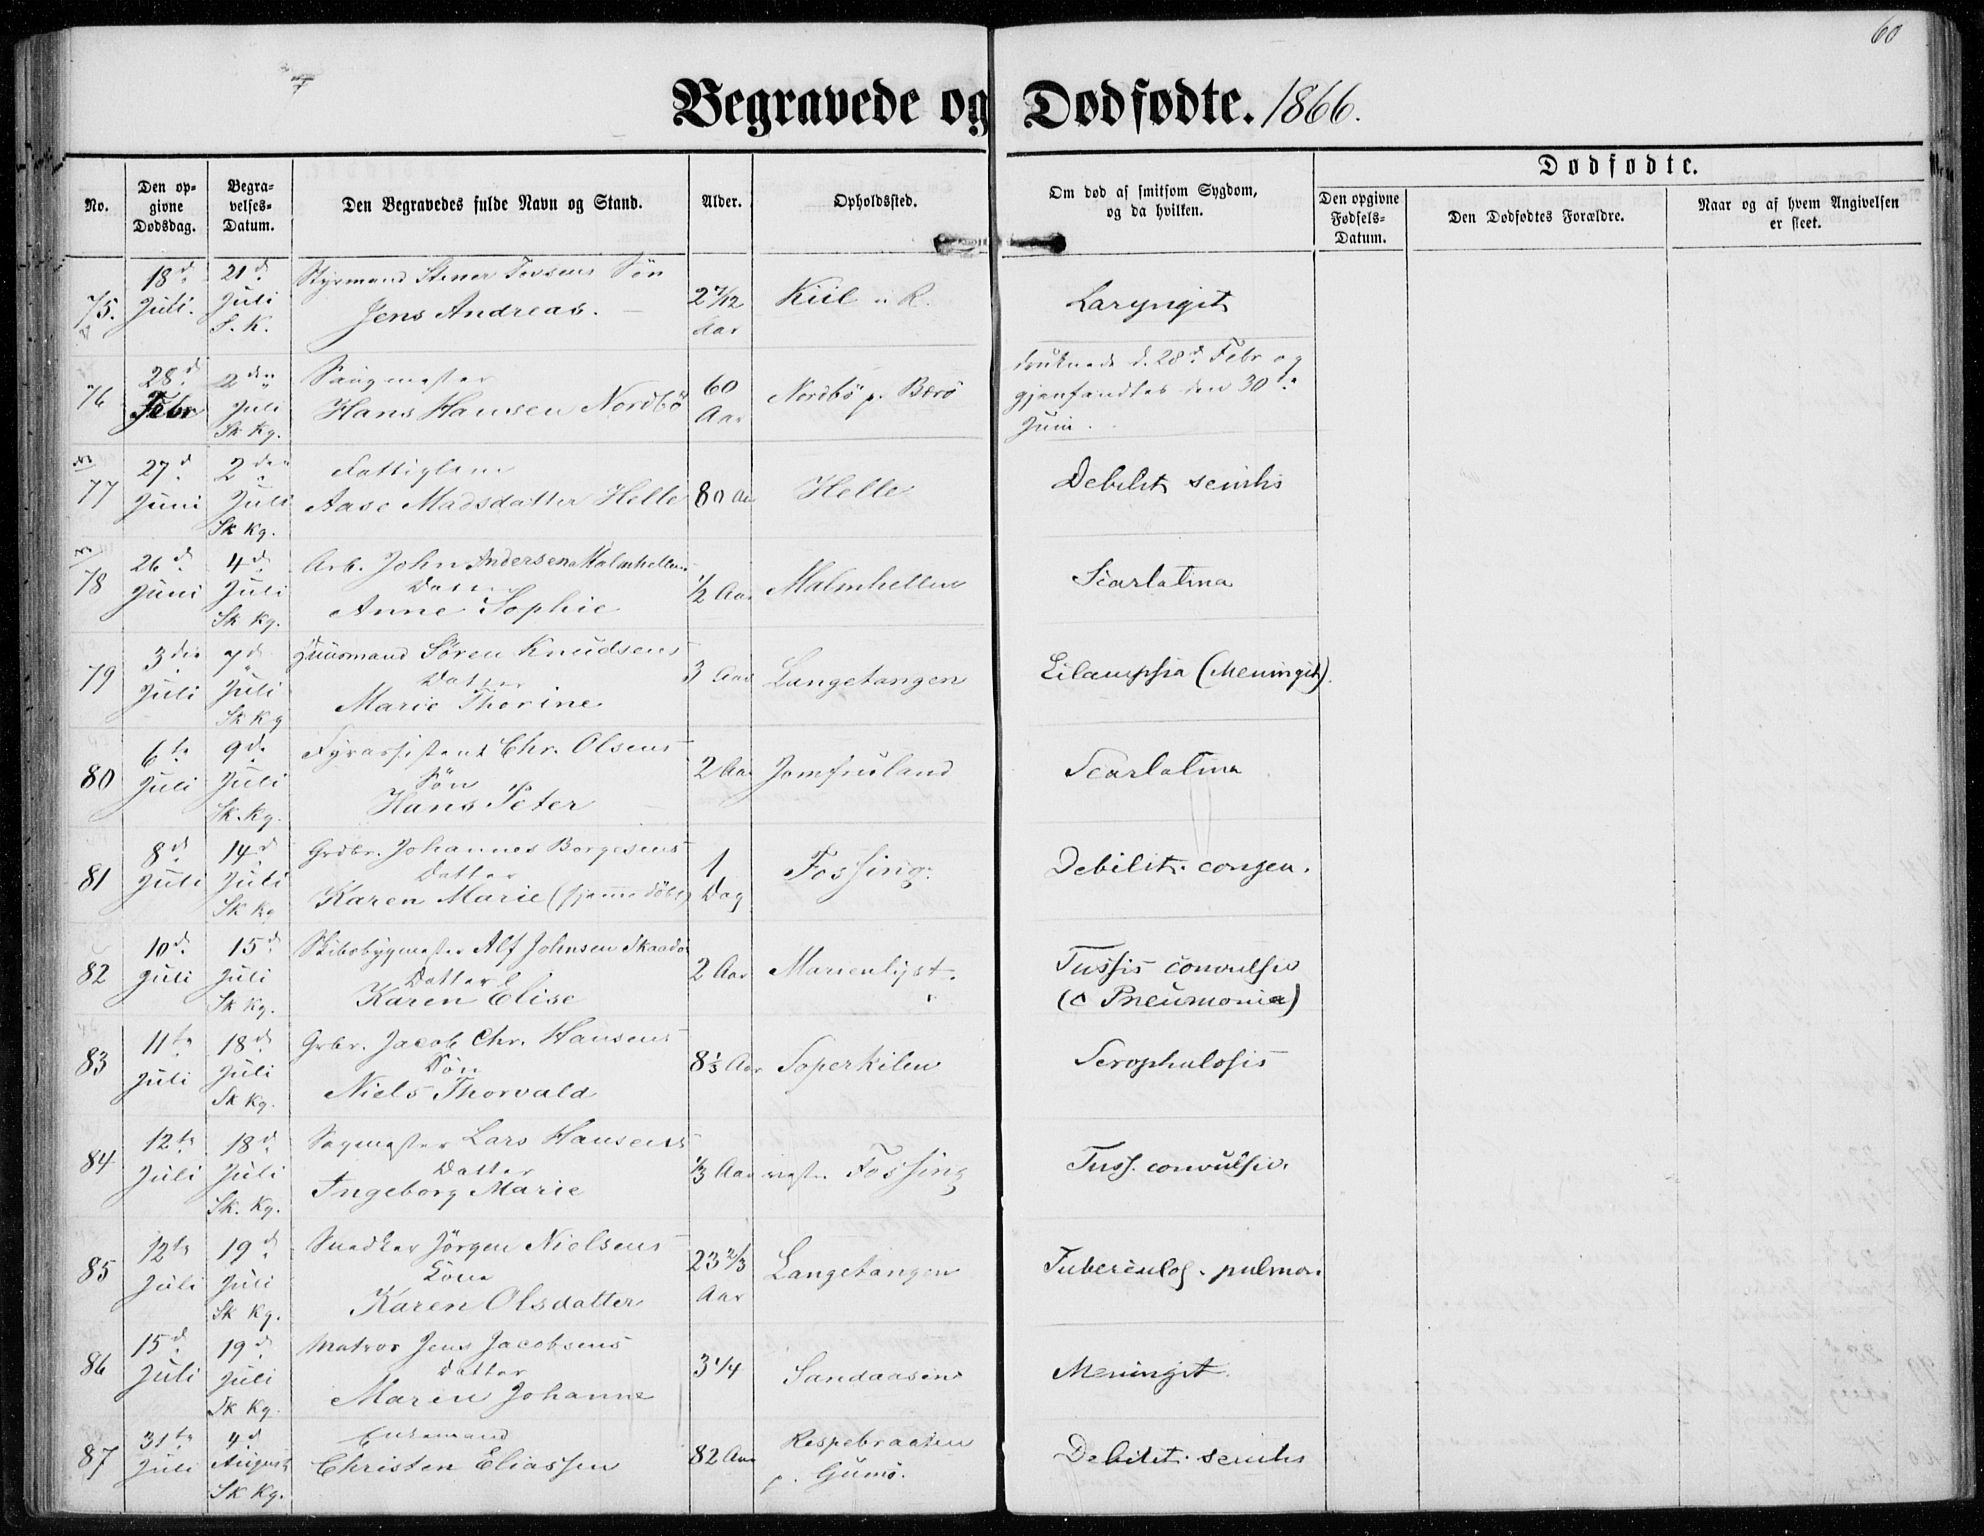 60
Begravede og Dødfødte. 1866.
No.
Den op-
givne
Dødsdag.
Begra-
velses-
Datum.
Den Begravedes fulde Navn og Stand.
Alder.
Opholdssted.
Om død af smitsom Sygdom,
og da hvilken.
Dødfødte.
Den opgivne
Fødsels-
Datum.
Den Dødfødtes Forældre.
Naar og af hvem Angivelsen
er skeet.
75. 18d Juli. 21d Juli S. K.
Styrmand Stener Tersens Søn
Jens Andreas.
2 7/12 Aar
Kiil i R.
Laryngit
76 28d Febr 2den Juli Sk Kg.
Saugmester
Hans Hansen Nordbö
60 Aar
Nordbö p. Bærö
druknede d. 28d Febr og
gjenfandtes den 30te
Juni.
77 27d Juni 2den Juli Sk Kg.
Fattiglem
Aase Madsdatter Helle
80 Aar
Helle
Debilit senilis
78 26d Juni 4d Juli Sk Kg.
Arb. John Andersen Malmhellens
Datter
Anne Sophie
1/2 Aar
Malmhellen
Scarlatina
79 3die Juli 7d Juli Sk Kg
Huusmand Sören Knudsens
Datter
Marie Thorine
3 Aar
Langetangen
Eilampsia (Meningit).
80 6te Juli 9de Juli Sk. Kg.
Fyrassistent Chr. Olsens
Sön
Hans Peter
2 Aar
Jomfruland
Scarlatina
81 8d Juli 14d Juli Sk Kg
Grdbr. Johannes Borgesens
Datter
Karen Marie (hjemmedöbt)
1 Dag
Fossing.
Debilit. congen.
82 10d Juli 15d Juli Sk Kg.
Skibsbygmester Alf Johnsen Skaadös
Datter
Karen Elise
2 Aar
Marienlyst.
Tussis convulsiv
(c Pneumonia)
83 11te Juli 18d Juli Sk Kg.
Grbr. Jacob Chr. Hansens
Sön
Niels Thorvald
8 1/3 Aar
Soperkilen
Scrophulosis
84 12te Juli 18d Juli Sk. Kg.
Sagmester Lars Hansens
Datter
Ingeborg Marie
1/3 Aar
Fossing
Tuss. convulsiv.
85 12te Juli 19d Juli Sk Kg.
Snedker Jörgen Nielsens
Kone
Karen Olsdatter
23 2/3 Aar
Langetangen
Tuberculos. pulmon.
86 15d Juli 19d Juli Sk Kg.
Matros Jens Jacobsens
Datter
Maren Johanne
3 1/4
Sandaasen
Meningit.
87 31te Juli 4d August Sk Kg.
Enkemand
Christen Eliassen
82 Aar
Respebraaten
p. Gumö.
Debilit. senilis